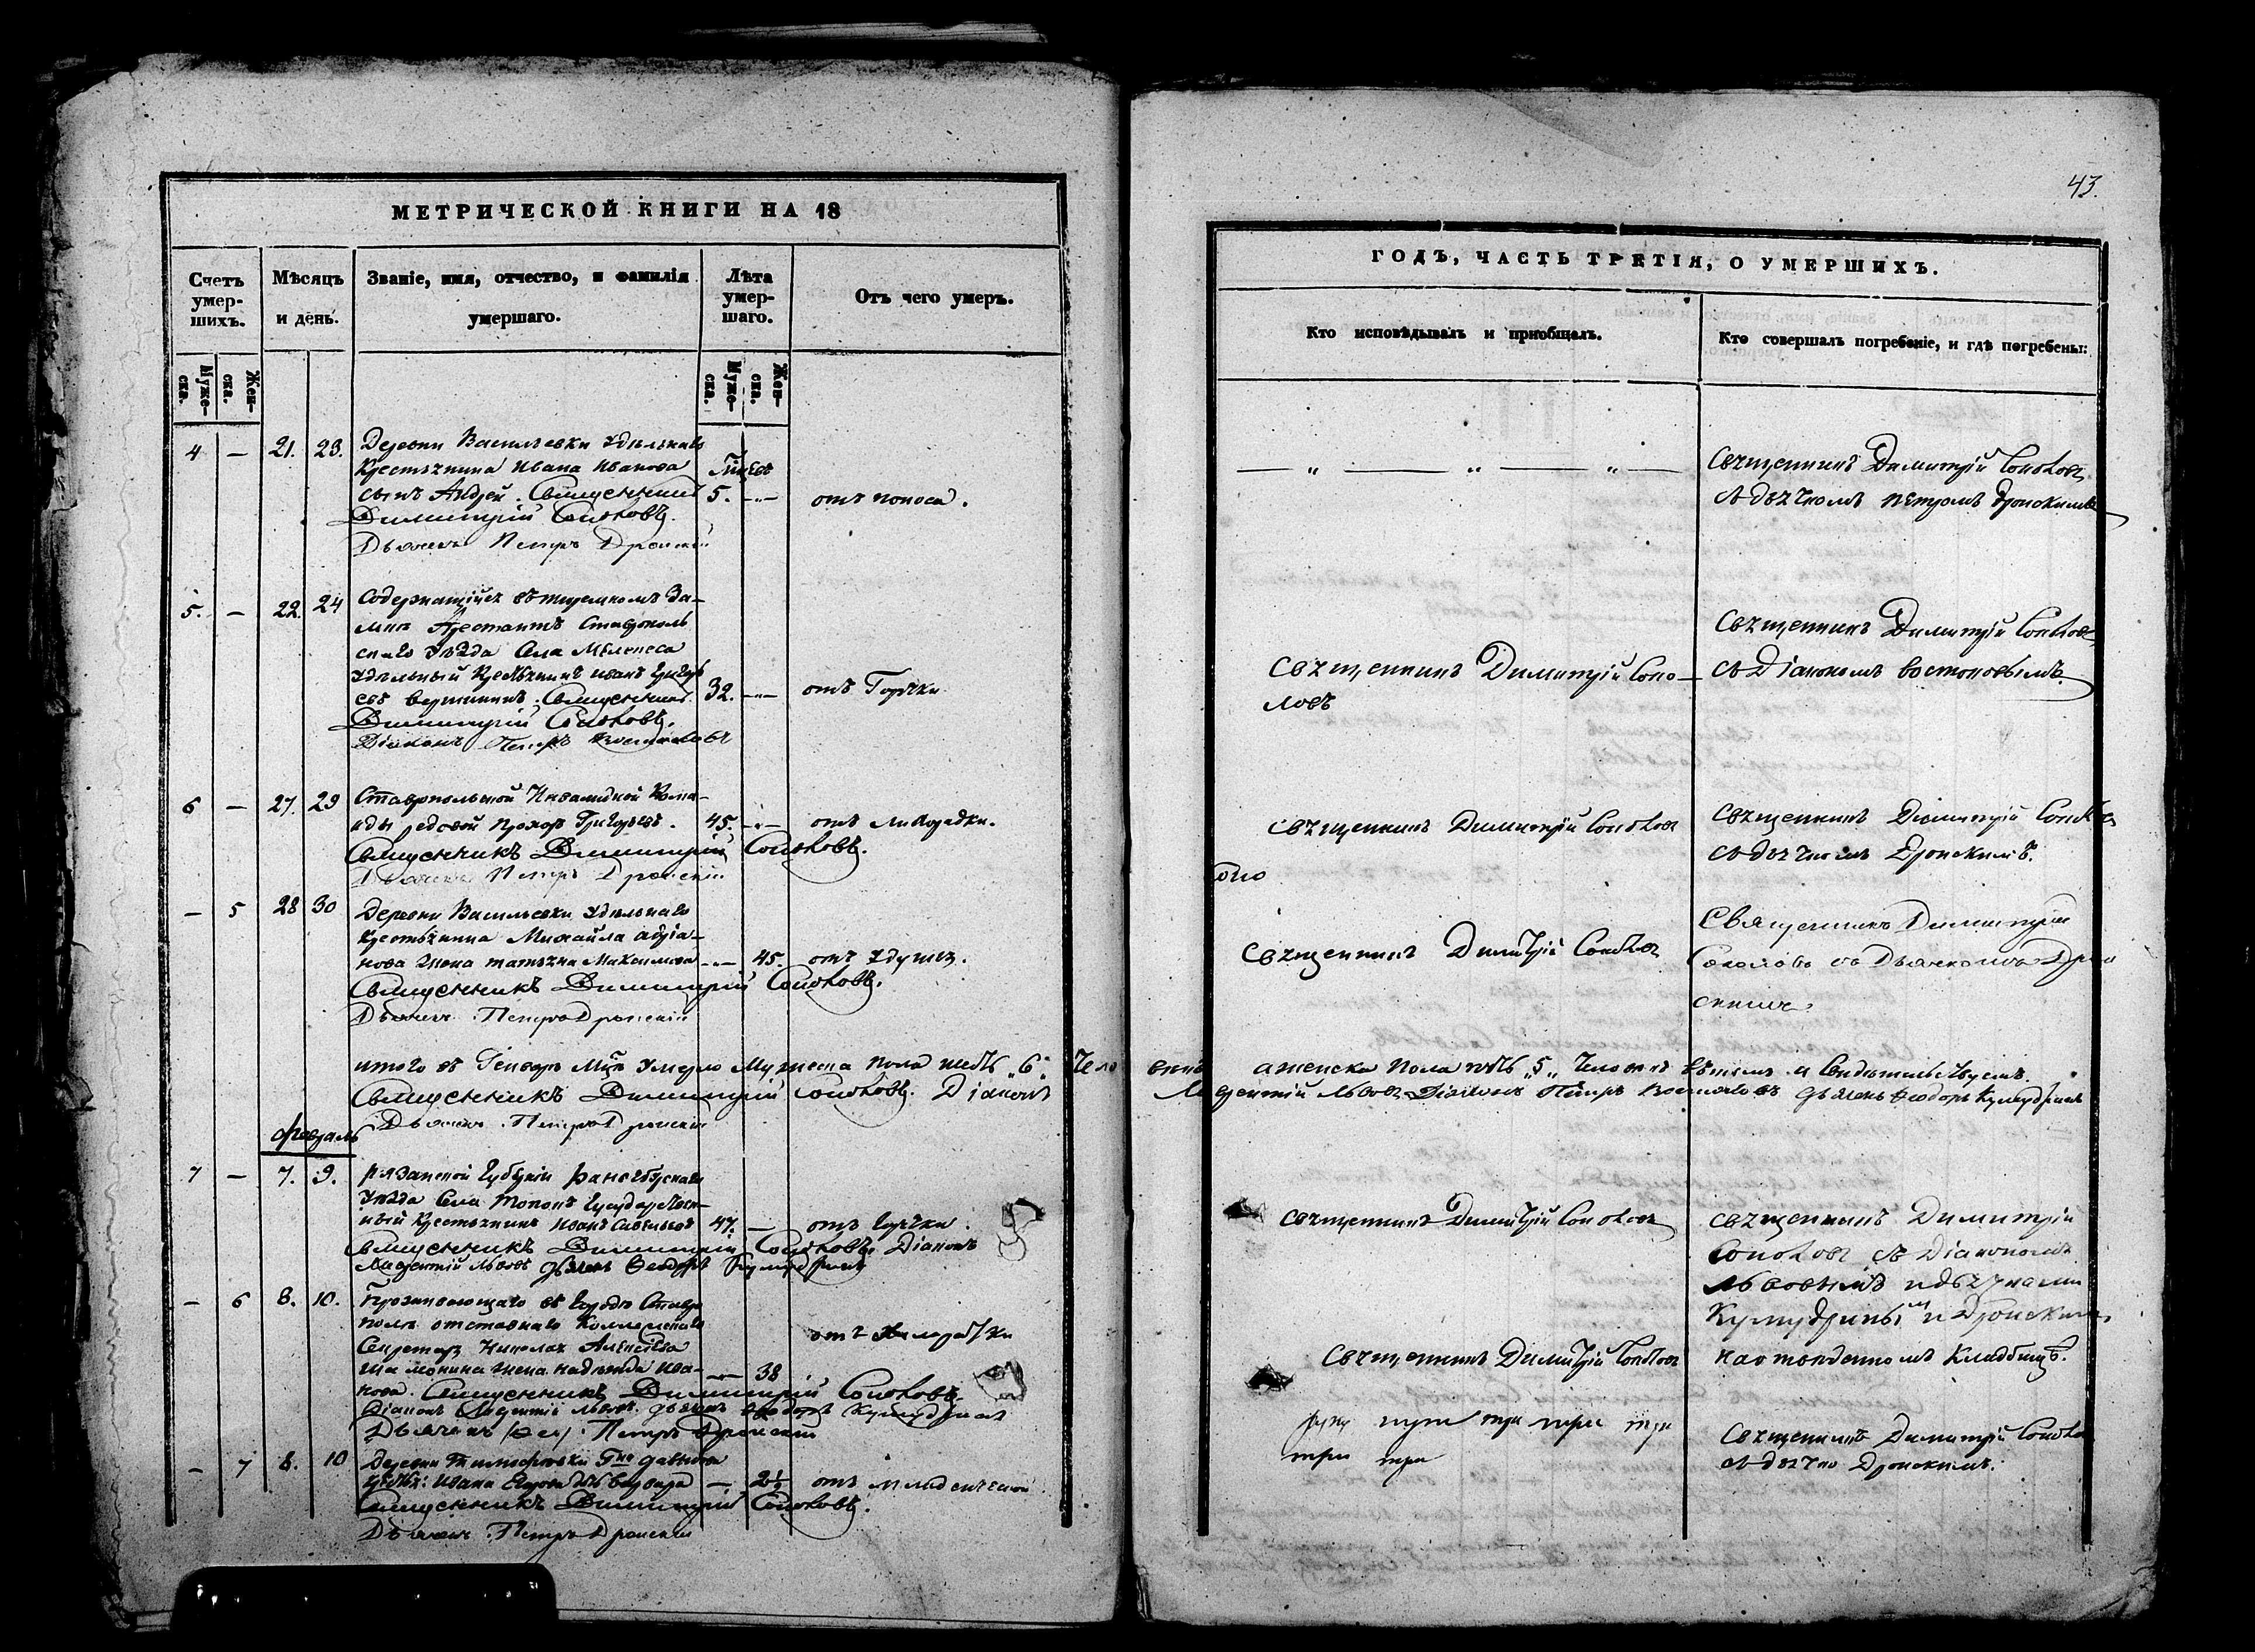 МЕТРИЧЕСКОЙ КНИГИ НА 18
Счетъ умер-шихъ.
Мѣсяцъ и день.
Званіе, имя, отчество, и фамилія умершаго.
Лѣта умер-шаго.
Отъ чего умеръ.
Муже-ска.
Жен-ска.
Муже-ска.
Жен-ска.
4 — 21. 23. Деревни Васильевки удѣльнаго
Крестьянина Ивана Иванова
сынъ Андрей. Священникъ 5. —„— отъ поноса.
Димитрій Соколовъ.
Дьячекъ Петръ Дронскій
5. — 22. 24 Содержащійся въ тюремномъ За-
мкѣ Арестантъ Ставрополь
скаго уѣзда Села Мелекеса
удѣльный Крестьянинъ Иванъ Григорь
евъ Священникъ 32. —„— отъ Горячки
Димитрій Соколовъ.
Діаконъ Петръ Востоковъ
6 — 27. 29 Ставропольской Инвалидной Кома-
нды редовой Прохоръ Григорьевъ. 45. —„— отъ лихорадки.
Священникъ Димитрій Соколовъ.
Дьячекъ Петръ Дронскій
— 5 28 30 Деревни Васильевки удѣльнаго
Крестьянина Михайла Адріа-
нова жена Татьяна Максимова —„— 45. отъ удушья.
Священникъ Димитрій Соколовъ.
Дьячекъ Петръ Дронскій
итого въ Генваре М-цѣ умерло Мужеска пола шесть „6„ Чело
Священникъ Димитрій Соколовъ. Діаконъ
Дьячекъ Петръ Дронскій
февраль
7 — 7. 9. Рязанской Губерніи Раненбургскаго
уѣзда Села Государствен-
ный Крестьянинъ Иванъ Савельевъ 47. — отъ горячки.
Священникъ Димитрій Соколовъ. Діаконъ
Львовъ дьячекъ Феодоръ Кумудринъ
— 6 8. 10. Проживающаго въ городѣ Ставро
полѣ отставнаго Коллежскаго
Секретаря Николая Алексѣева отъ
жена Надежда Ива- —„— 38
нова. Священникъ Димитрій Соколовъ.
Діаконъ Львовъ. дьячекъ Феодоръ Кумудринъ
Дьячекъ Петръ Дронскій
— 7 8. 10 Деревни Тимофеевки Г-на Давыдова
Ивана Егорова дочь Варвара — 2½ отъ младенческой
Священникъ Димитрій Соколовъ.
Дьячекъ Петръ Дронскій
43.
ГОДЪ, ЧАСТЬ ТРЕТІЯ, О УМЕРШИХЪ.
Кто исповѣдывалъ и пріобщалъ.
Кто совершалъ погребеніе, и гдѣ погребены:
— „ — „ — „ — Священникъ Димитрій Соколовъ
съ дьячкомъ Петромъ Дронскимъ
Священникъ Димитрій Соко-
ловъ
Священникъ Димитрій Соколовъ
съ Діакономъ Востоковымъ.
Священникъ Димитрій Соколовъ
Священникъ Димитрій Соколовъ
съ дьячкомъ Дронскимъ.
Священникъ Димитрій Соколовъ
Священникъ Димитрій
Соколовъ съ Дьячкомъ Дрон
скимъ
вѣкъ а женска пола пять „5„ Человекъ въ томъ и свидѣтельствуемъ.
Львовъ Діаконъ Петръ Востоковъ дьячекъ Феодоръ Кумудринъ
Священникъ Димитрій Соколовъ
Священникъ Димитрій
Соколовъ съ Діакономъ
Львовымъ и дьячками
Кумудринымъ и Дронскимъ
Священникъ Димитрій Соколовъ
на отведенномъ кладбищѣ.
при при при при
при при
Священникъ Димитрій Соколовъ
съ дьячко Дронскимъ.